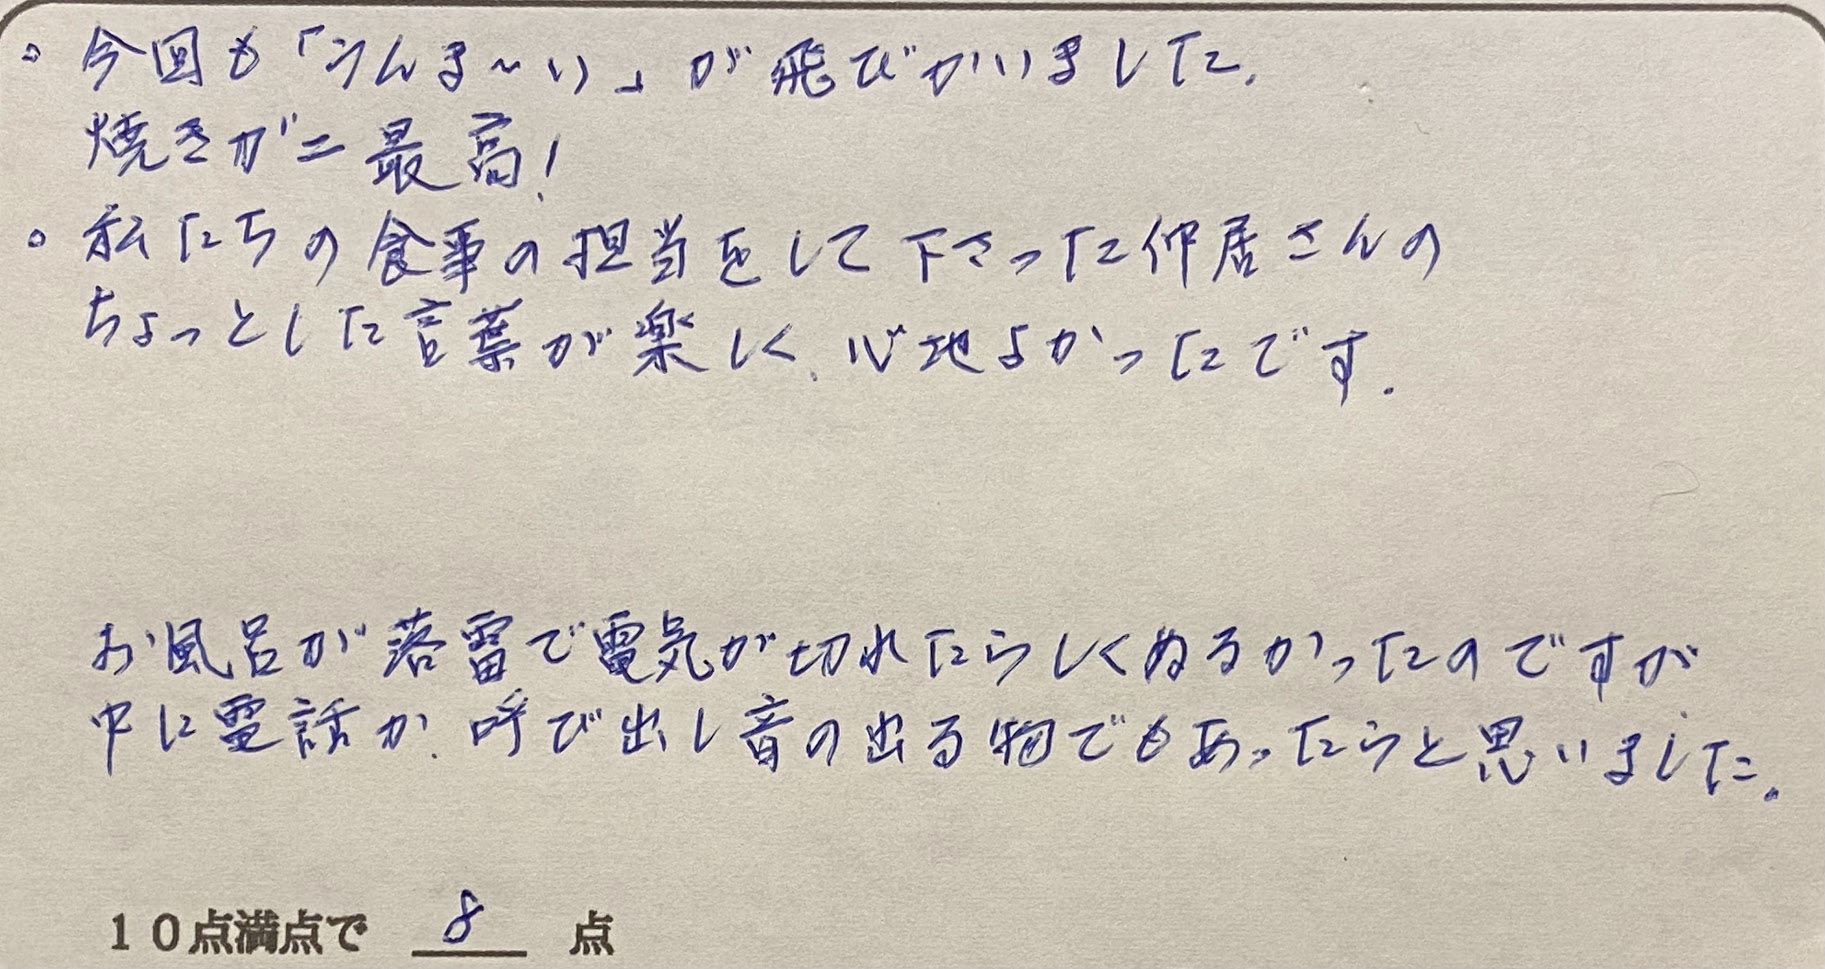 。今回も「うんま〜い」が飛びかいました。
焼きガニ最高!
。私たちの食事の担当をして下さった仲居さんの
ちょっとした言葉が楽しく、心地よかったです。
お風呂が落雷で電気が切れたらしくぬるかったのですが
中に電話か、呼び出し音の出る物でもあったらと思いました。
10点満点で 8 点